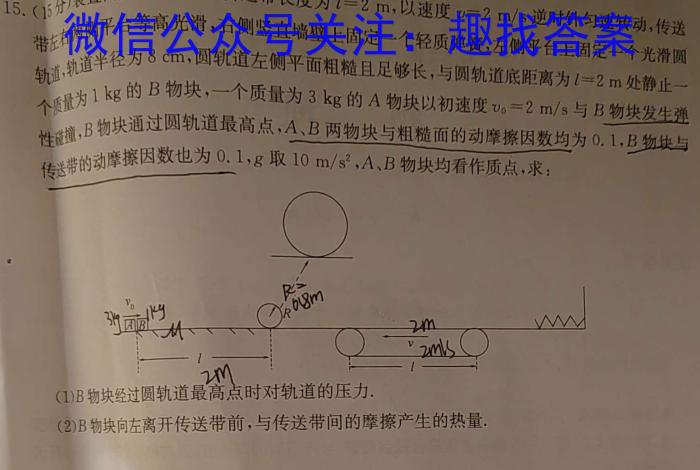 15.(15分)
长度为l=2 m,以速度v=2
逆时针
转动,传送
带左右
等高光滑,右侧竖直墙壁上固定一个轻质弹簧,左侧
固定一个光滑圆
微信公众号关注:趣找答案
轨道,轨道半径为8 cm,圆轨道左侧平面粗糙且足够长,与圆轨道底距离为l=2 m处静止一
个质量为1 kg的B物块,一个质量为3 kg的A物块以初速度v₀=2 m/s与B物块发生弹
性碰撞,B物块通过圆轨道最高点,A、B两物块与粗糙面的动摩擦因数均为0.1,B物块与
传送带的动摩擦因数也为0.1,g取10 m/s²,A、B物块均看作质点,求:
R=
0.8m
3kg
v₀
1kg
A
B
R
2m
v
2m/s
l
l
2M
(1)B物块经过圆轨道最高点时对轨道的压力.
(2)B物块向左离开传送带前,与传送带间的摩擦产生的热量.